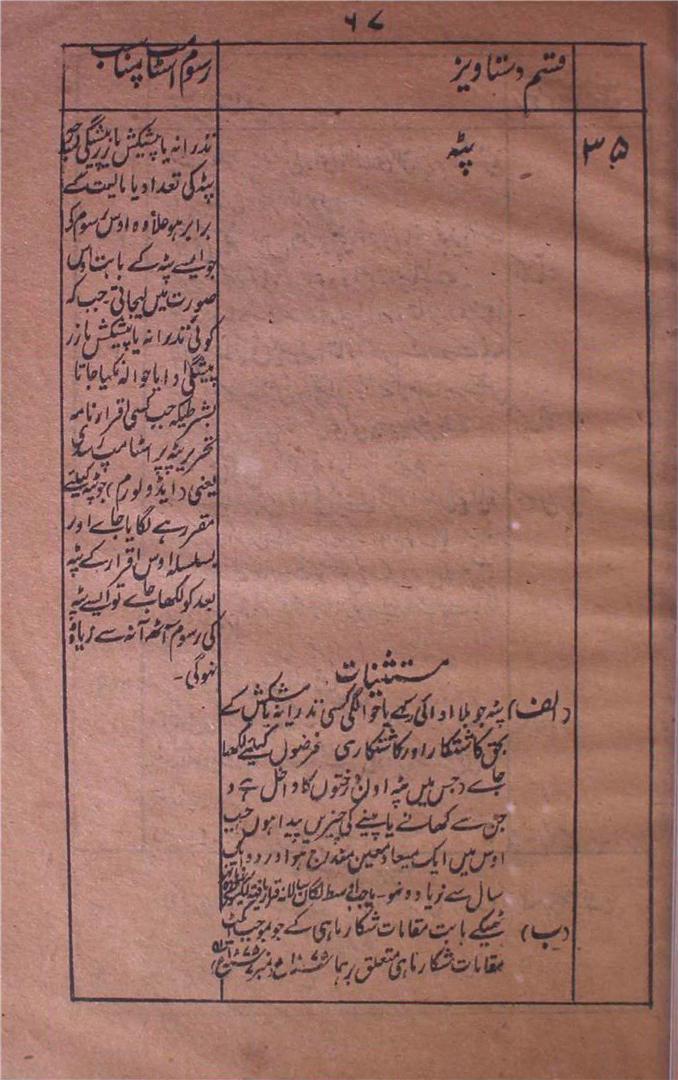 ۶۷
قسم دستاویز
رسوم اسٹامپ مناسب
۳۵
پٹہ
نذرانہ یا پیشکش یا زر پیشگی
پٹہ کی تعداد یا مالیت کے
برابر ہو علاوہ اوس رسوم کو
جو ایسے پٹہ کے بابت اوس
صورت میں لیجاتی جب کہ
کوئی نذرانہ یا پیشکش یا زر
پیشگی ادا یا حوالہ نکیا جاتا
بشرطیکہ جب کسی اقرارنامہ
تحریر پٹہ پر اسٹامپ
یعنی (ایڈولورم) جو پٹہ کیلئے
مقرر ہے لگایا جاے اور
بسلسلہ اوس اقرار کے پٹہ
بعد کو لکھا جاے تو ایسے پٹہ
کی رسوم آٹھ آنہ سے زیادہ
نہوگی۔
مستثنیات
(الف) پٹہ جو بلا ادائی کے یا حوالگی کسی نذرانہ یا پیشکش کے
بحق کاشتکار اور کاشتکاری غرضوں کیلئے لکھا
جاے (جس میں پٹہ اون درختوں کا داخل ہے و
جن سے کھانے یا پینے کی چیزیں پیدا ہوں جب
اوس میں ایک میعاد معین مندرج ہو اور وہ ایک
سال سے زیادہ نہو۔ یا جب اوسط لگان سالانہ قرار یافتہ
(ب) ٹھیکے بابت مقامات شکار ماہی کے جو بموجب ایکٹ
مقامات شکار ماہی متعلق برہما ۱۸۷۵ء